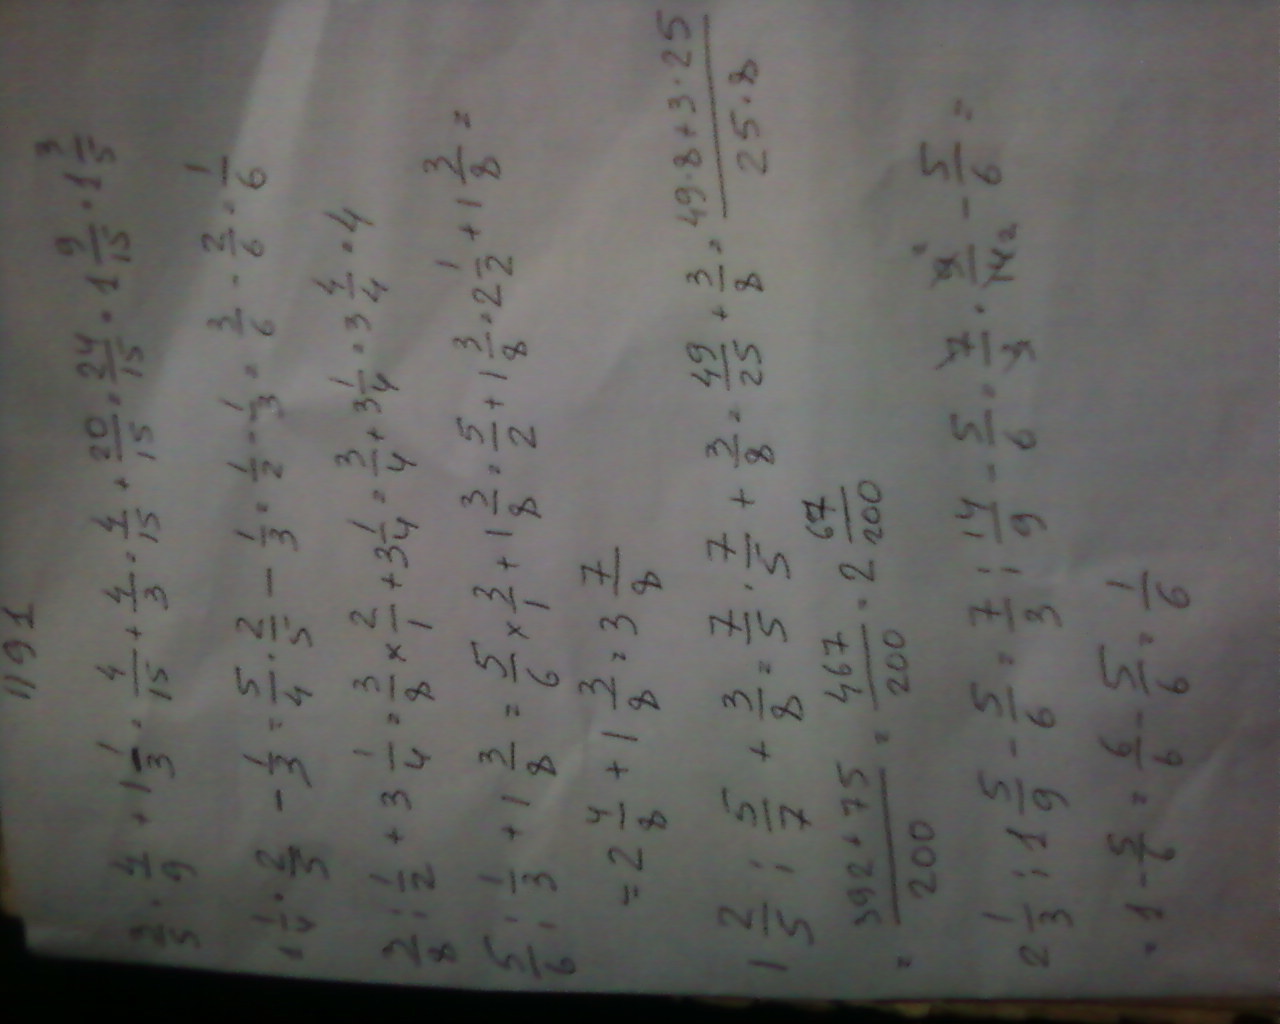 1191
3/5 · 4/9 + 1 1/3 = 4/15 + 4/3 = 4/15 + 20/15 = 24/15 = 1 9/15 = 1 3/5
1 1/4 · 2/5 - 1/3 = 5/4 · 2/5 - 1/3 = 1/2 - 1/3 = 3/6 - 2/6 = 1/6
3/8 : 1/2 + 3 1/4 = 3/8 × 2/1 + 3 1/4 = 3/4 + 3 1/4 = 3 4/4 = 4
5/6 : 1/3 + 1 3/8 = 5/6 × 3/1 + 1 3/8 = 5/2 + 1 3/8 = 2 1/2 + 1 3/8 =
= 2 4/8 + 1 3/8 = 3 7/8
1 2/5 : 5/7 + 3/8 = 7/5 · 7/5 + 3/8 = 49/25 + 3/8 = 49·8+3·25/25·8
= 392+75/200 = 467/200 = 2 67/200
2 1/3 : 1 5/9 - 5/6 = 7/3 : 14/9 - 5/6 = 7/3 · 9/14 2 - 5/6 =
= 1 - 5/6 = 6/6 - 5/6 = 1/6